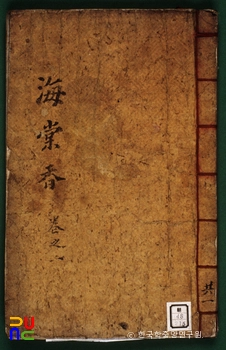 海棠香
卷之
共
© 한국학중앙연구원